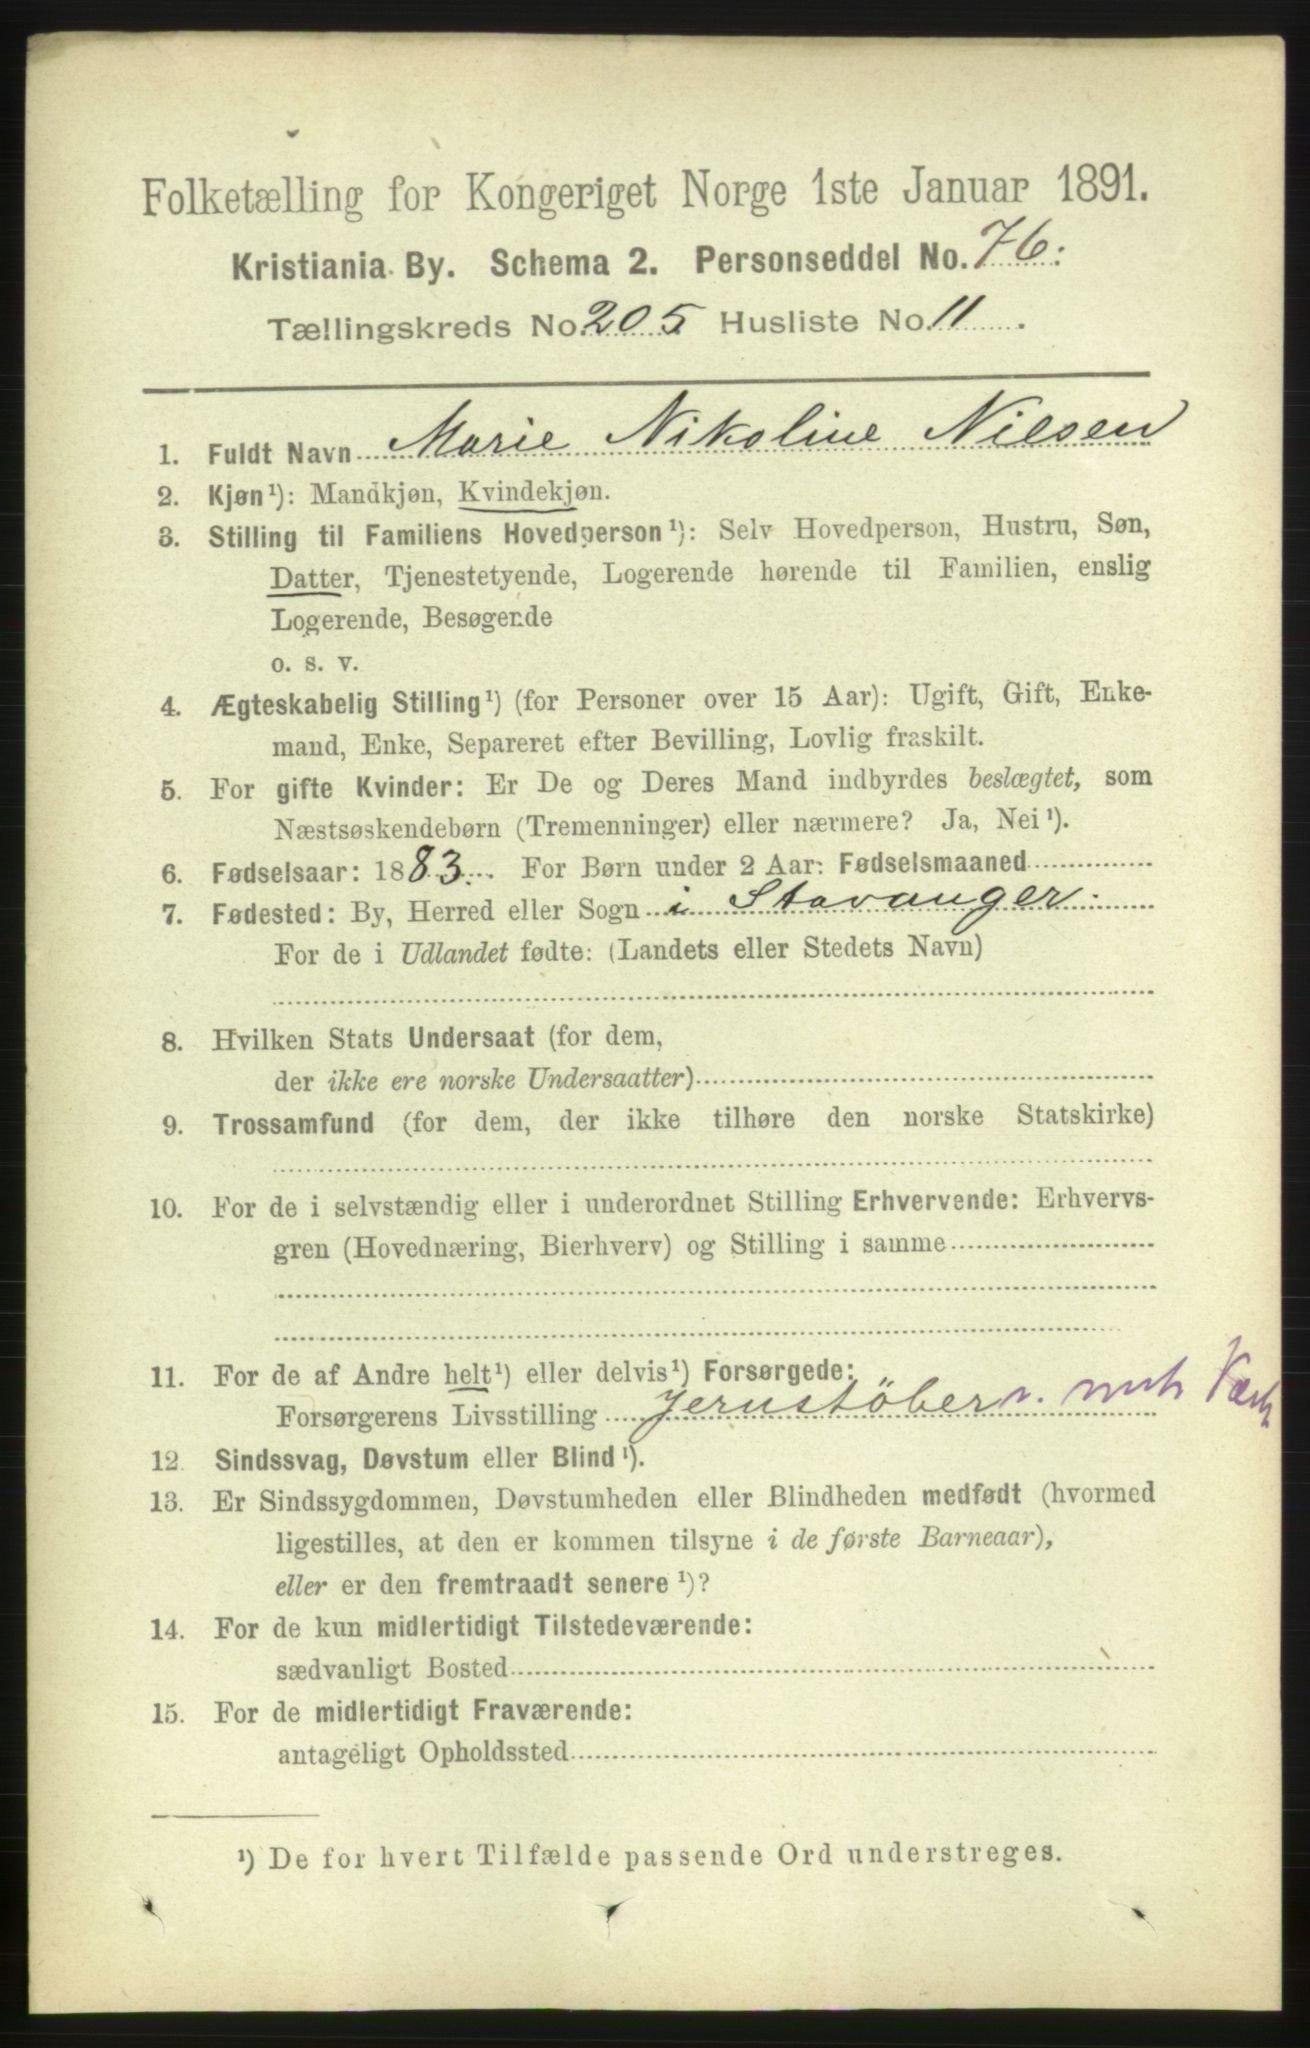 Folketælling for Kongeriget Norge 1ste Januar 1891.
Kristiania By. Schema 2. Personseddel No. 76.
Tællingskreds No. 205 Husliste No. 11.
1. Fuldt Navn Marie Nikoline Nilsen
2. Kjøn¹): Mandkjøn, Kvindekjøn.
3. Stilling til Familiens Hovedperson¹): Selv Hovedperson, Hustru, Søn,
Datter, Tjenestetyende, Logerende hørende til Familien, enslig
Logerende, Besøgende
o. s. v.
4. Ægteskabelig Stilling¹) (for Personer over 15 Aar): Ugift, Gift, Enke-
mand, Enke, Separeret efter Bevilling, Lovlig fraskilt.
5. For gifte Kvinder: Er De og Deres Mand indbyrdes beslægtet, som
Næstsøskendebørn (Tremenninger) eller nærmere? Ja, Nei¹).
6. Fødselsaar: 1883. For Børn under 2 Aar: Fødselsmaaned
7. Fødested: By, Herred eller Sogn i Stavanger.
For de i Udlandet fødte: (Landets eller Stedets Navn)
8. Hvilken Stats Undersaat (for dem,
der ikke ere norske Undersaatter)
9. Trossamfund (for dem, der ikke tilhøre den norske Statskirke)
10. For de i selvstændig eller i underordnet Stilling Erhvervende: Erhvervs-
gren (Hovednæring, Bierhverv) og Stilling i samme
11. For de af Andre helt¹) eller delvis¹) Forsørgede:
Forsørgerens Livsstilling Jernstöber v. mek Værk
12. Sindssvag, Døvstum eller Blind¹).
13. Er Sindssygdommen, Døvstumheden eller Blindheden medfødt (hvormed
ligestilles, at den er kommen tilsyne i de første Barneaar),
eller er den fremtraadt senere¹)?
14. For de kun midlertidigt Tilstedeværende:
sædvanligt Bosted
15. For de midlertidigt Fraværende:
antageligt Opholdssted
¹) De for hvert Tilfælde passende Ord understreges.